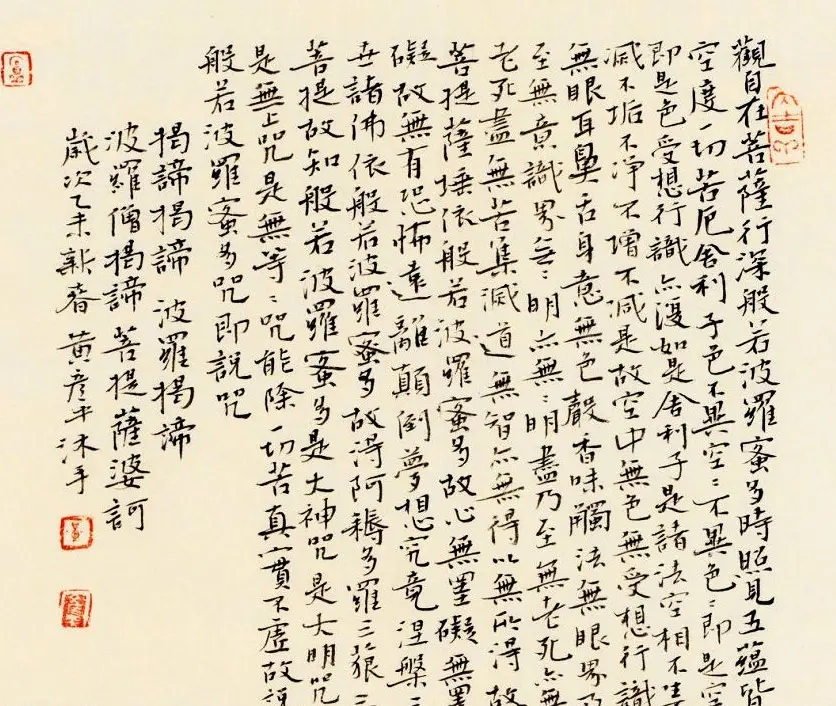 觀自在菩薩行深般若波羅蜜多時照見五蘊皆
空度一切苦厄舍利子色不異空〻不異色〻即是空
即是色受想行識亦復如是舍利子是諸法空相不生
滅不垢不淨不增不減是故空中無色無受想行識
無眼耳鼻舌身意無色聲香味觸法無眼界乃
至無意識界無〻明亦無〻明盡乃至無老死亦無
老死盡無苦集滅道無智亦無得以無所得故
菩提薩埵依般若波羅蜜多故心無罣礙無罣
礙故無有恐怖遠離顛倒夢想究竟涅槃三
世諸佛依般若波羅蜜多故得阿耨多羅三藐三
菩提故知般若波羅蜜多是大神咒是大明咒
是無上咒是無等〻咒能除一切苦真實不虛故說
般若波羅蜜多咒即說咒
揭諦揭諦 波羅揭諦
波羅僧揭諦菩提薩婆訶
歲次乙未新春黃彥平沐手